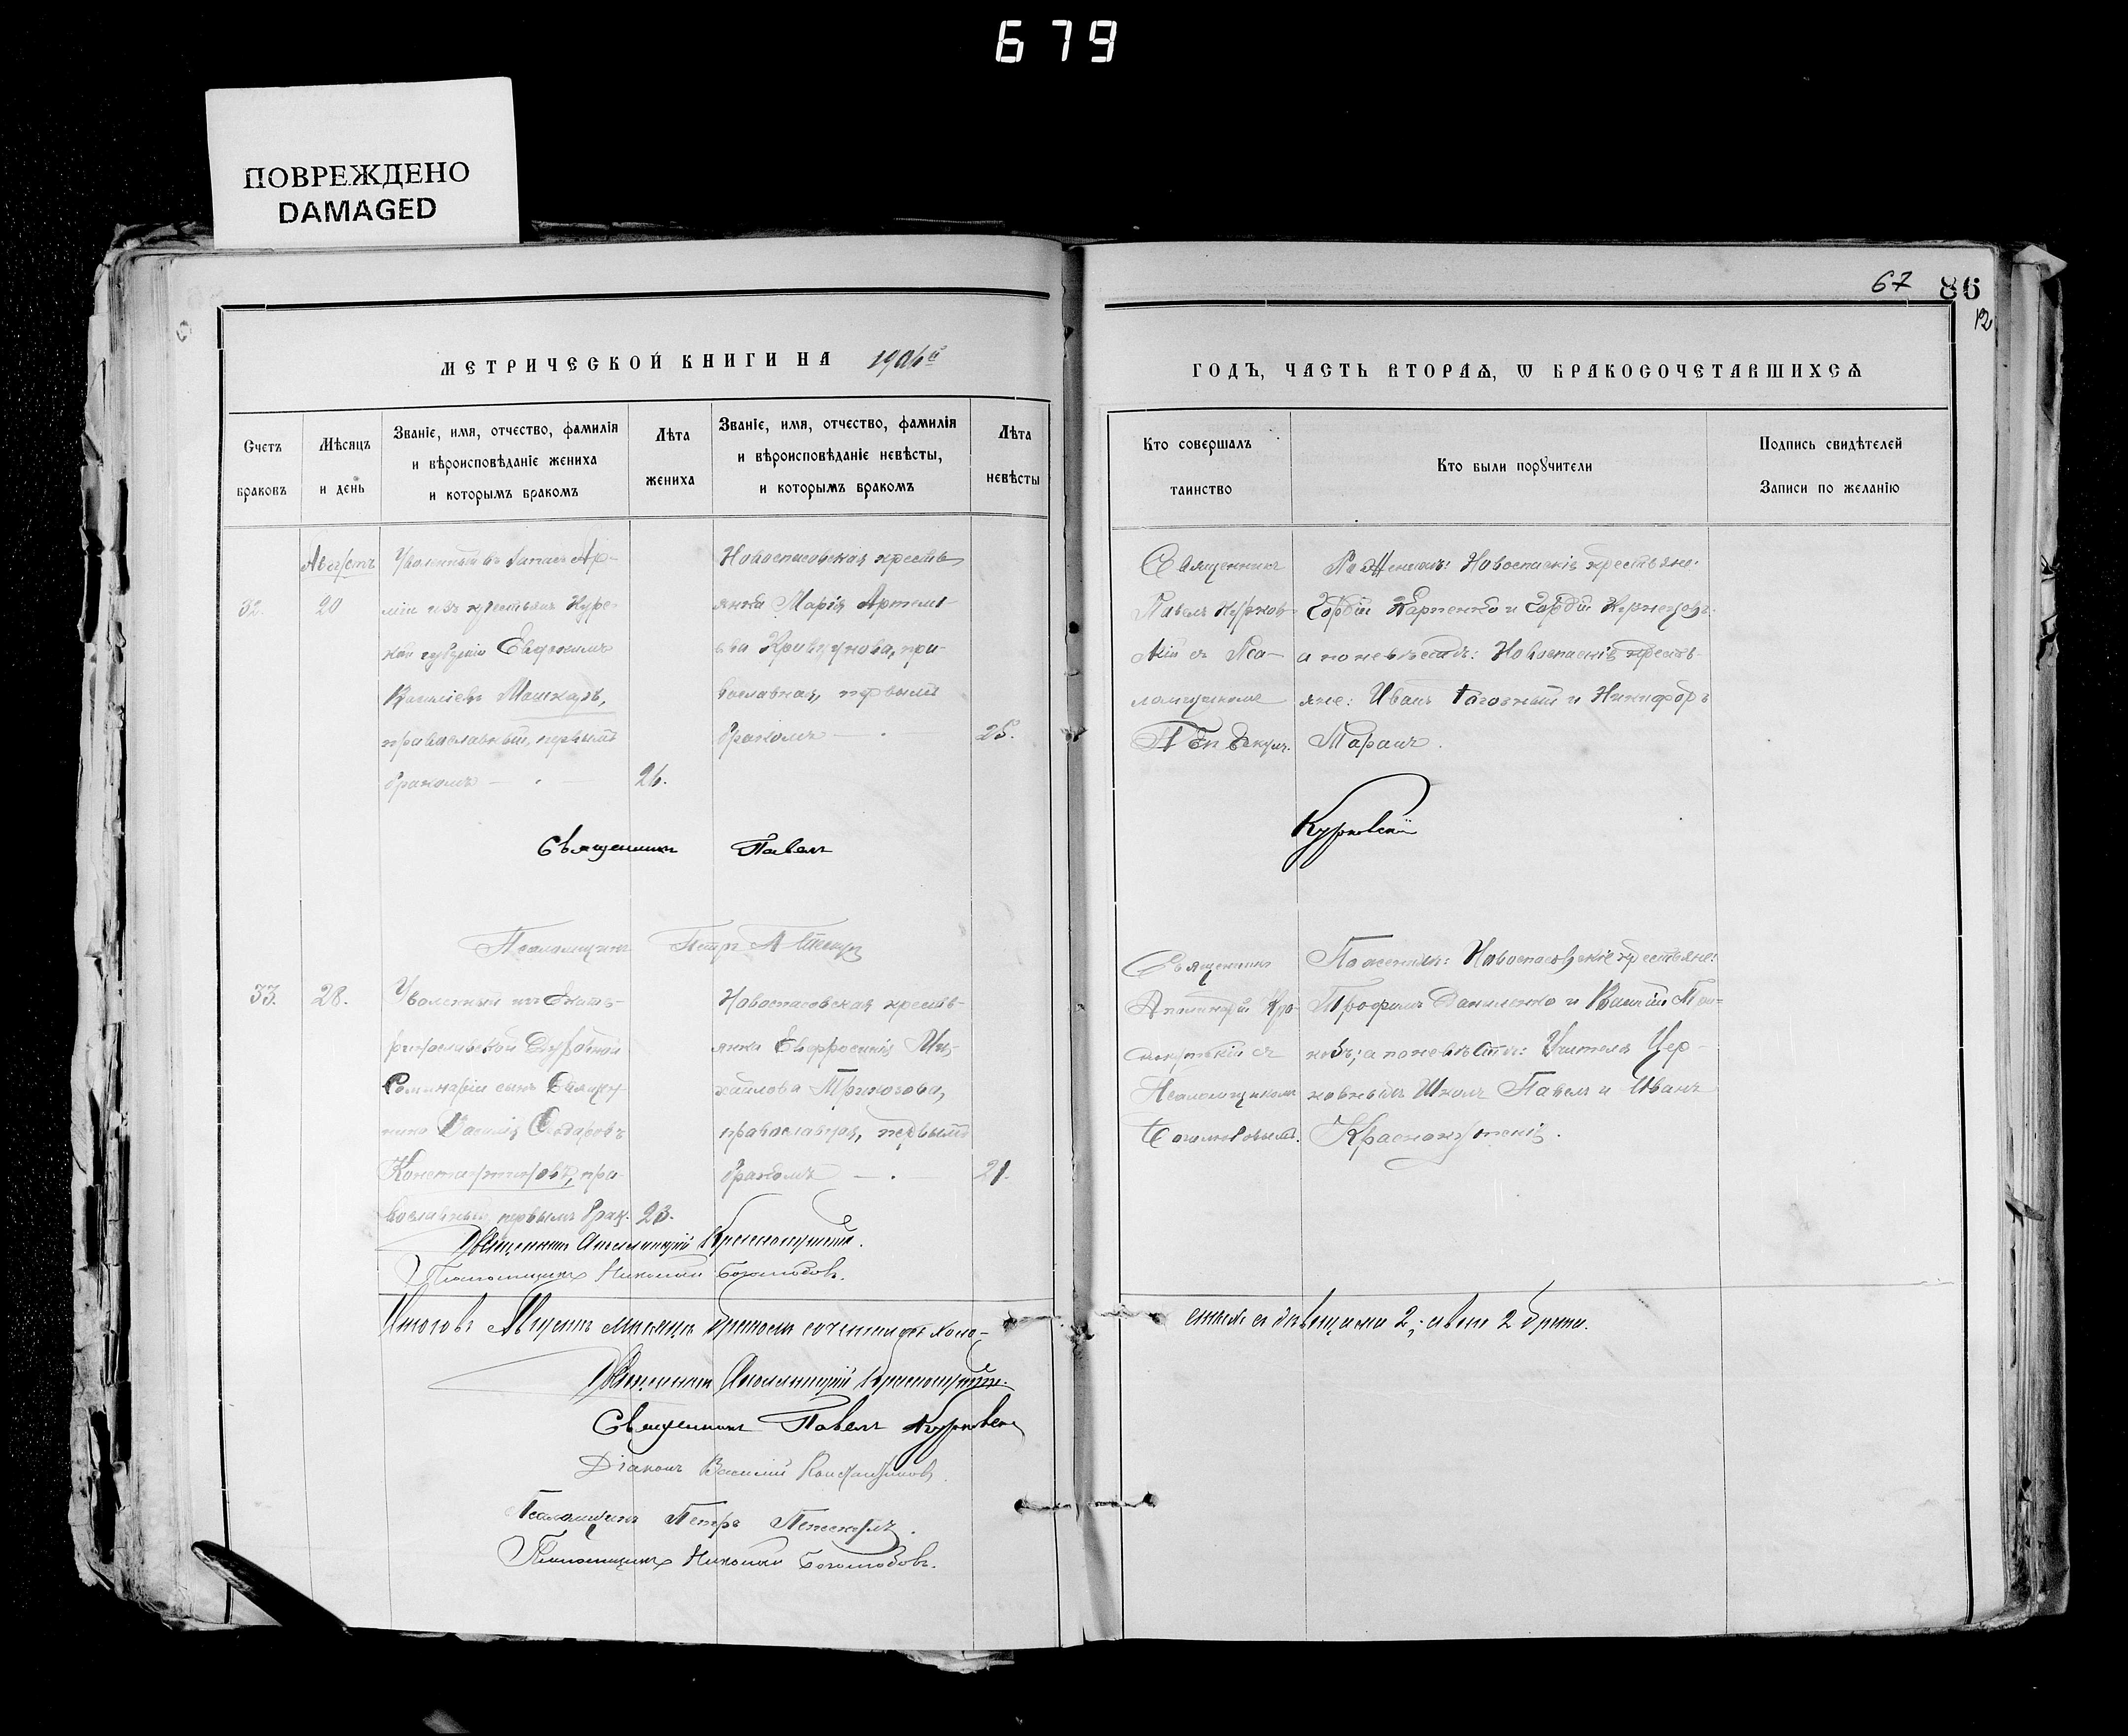 679
ПОВРЕЖДЕНО
DAMAGED
67 86
12
МЕТРИЧЕСКОЙ КНИГИ НА 1906й
ГОДЪ, ЧАСТЬ ВТОРАѦ, Ѡ БРАКОСОЧЕТАВШИХСѦ
Счетъ браковъ
Мѣсяцъ и день
Званіе, имя, отчество, фамилія
и вѣроисповѣданіе жениха
и которымъ бракомъ
Лѣта жениха
Званіе, имя, отчество, фамилія
и вѣроисповѣданіе невѣсты,
и которымъ бракомъ
Лѣта невѣсты
Кто совершалъ таинство
Кто были порꙋчители
Подпись свидѣтелей
Записи по желанію
32.
Августъ
20
Уволенный въ запасъ Ар-
міи изъ крестьянъ Кур-
ской губерніи Евфимъ
Василіевъ Машкаръ,
православный, первымъ
бракомъ
26.
Новоспасовская кресть-
янка Марія Артемі-
ева Кривцунова, пра-
вославная, первымъ
бракомъ
25.
Священникъ
Павелъ Курков-
скій съ Пса-
ломщикомъ
По женихѣ: Новоспаскіе крестьяне:
Гордій Карпенко и Гордій Кернецовъ:
а по невѣстѣ: Новоспаскіе кресть-
яне: Иванъ и Никифоръ
Таранъ.
Священникъ Павелъ Курковскій
Псаломщикъ Петръ
33.
28.
Уволенный изъ Екате-
ринославской Духовной
Семинаріи сынъ Священ-
ника Василій Ѳедоровъ
Константиновъ, пра-
вославный первымъ брак.
23.
Новоспасовская кресть-
янка Евфросинія Ми-
хайлова Тринозова,
православная, первымъ
бракомъ
21.
Священникъ
Аполлинарій Кра-
снокутскій съ
Псаломщикомъ
Боголюбовымъ.
По женихѣ: Новоспасовскіе крестьяне:
Трофимъ Даниленко и Василій
а по невѣстѣ: Учителя Цер-
ковныхъ Школъ Павелъ и Иванъ
Краснокутскіе.
Священникъ Аполлинарій Краснокутскій.
Псаломщикъ Николай Боголюбовъ.
Итого въ Августѣ мѣсяцѣ бракомъ сочетались холо-
стыхъ съ дѣвицами 2; всего 2 брака.
Священникъ Аполлинарій Краснокутскій.
Священникъ Павелъ Курковскій
Діаконъ Василій Константиновъ.
Псаломщикъ Петръ
Псаломщикъ Николай Боголюбовъ.